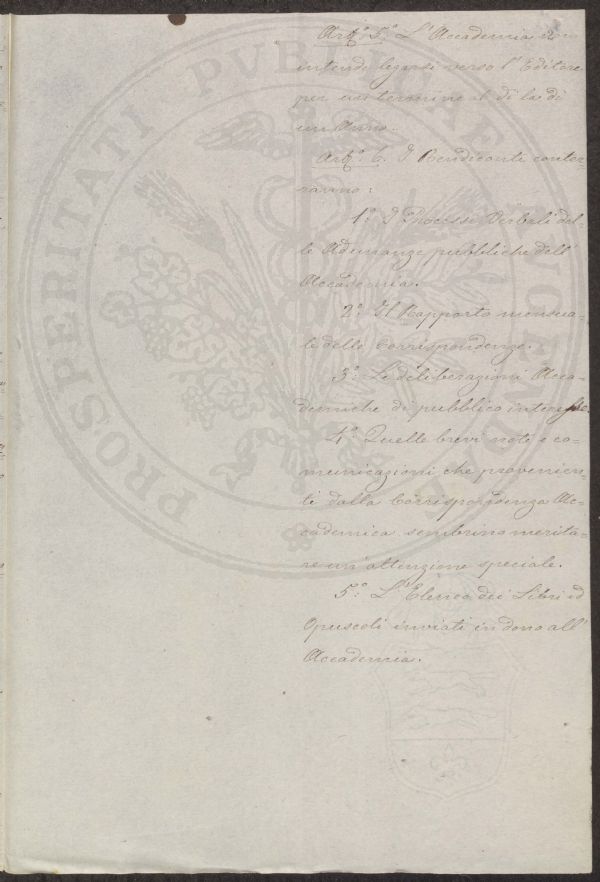 Artº: 5º L'Accademia non
intende legarsi verso l'Editore
per un termine al di là di
un Anno.
Artº: 6. I Rendiconti conter-
ranno:
1º: I Processi Verbali del-
le Adunanze pubbliche dell'
Accademia.
2º: Il Rapporto mensua-
le delle Corrispondenze.
3º: Le deliberazioni Acca-
demiche di pubblico interesse.
4º: Quelle brevi note e co-
municazioni che provenien-
ti dalla Corrispondenza Ac-
cademica sembrino merita-
re un'attenzione speciale.
5º: L'Elenco dei Libri ed
Opuscoli inviati in dono all'
Accademia.
PROSPERITATI PVBLICAE AVGENDAE